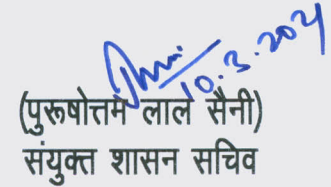 10.3.2021
(पुरूषोत्तम लाल सैनी)
संयुक्त शासन सचिव